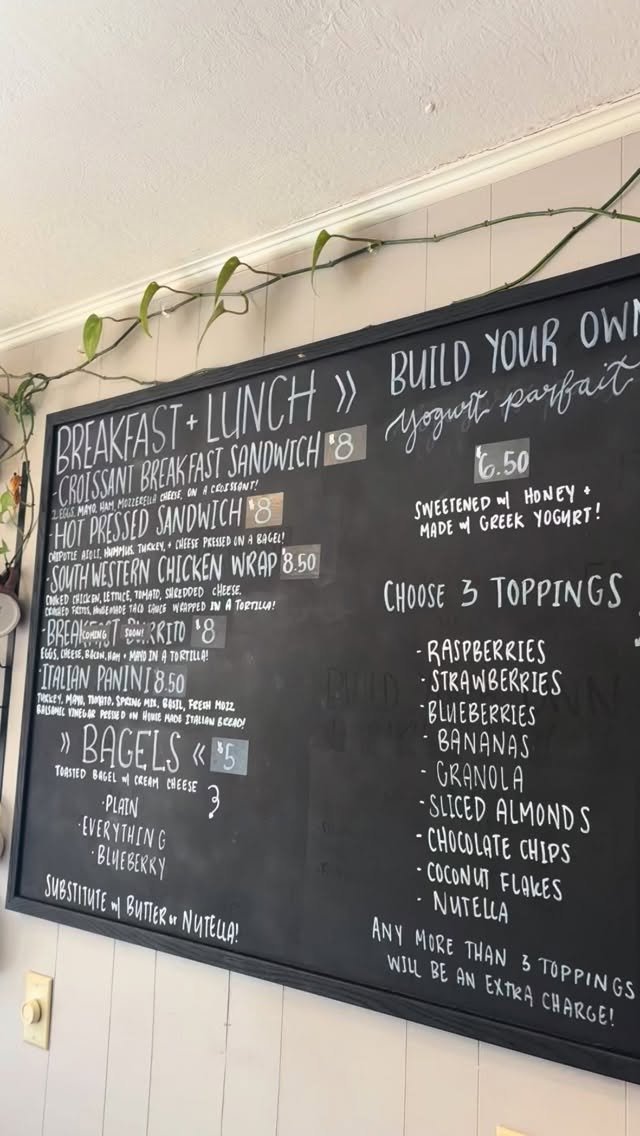 BREAKFAST + LUNCH »
- CROISSANT BREAKFAST SANDWICH $8
2 EGGS, MAYO, HAM, MOZZERELLA CHEESE, ON A CROISSANT!
- HOT PRESSED SANDWICH $8
CHIPOTLE AIOLI, HUMMUS, TURKEY, + CHEESE PRESSED ON A BAGEL!
- SOUTHWESTERN CHICKEN WRAP $8.50
COOKED CHICKEN, LETTUCE, TOMATO, SHREDDED CHEESE,
CRUSHED FRITOS, HOMEMADE TACO SAUCE WRAPPED IN A TORTILLA!
- BREAKFAST BURRITO $8
COMING SOON!
EGGS, CHEESE, BACON, HAM + MAYO IN A TORTILLA!
- ITALIAN PANINI 8.50
TURKEY, MAYO, TOMATO, SPRING MIX, BASIL, FRESH MOZZ
BALSAMIC VINEGAR PRESSED ON HOUSE MADE ITALIAN BREAD!
» BAGELS « $5
TOASTED BAGEL w/ CREAM CHEESE
· PLAIN
· EVERYTHING
· BLUEBERRY
SUBSTITUTE w/ BUTTER or NUTELLA!
BUILD YOUR OWN
Yogurt parfait
$6.50
SWEETENED w/ HONEY +
MADE w/ GREEK YOGURT!
CHOOSE 3 TOPPINGS
- RASPBERRIES
- STRAWBERRIES
- BLUEBERRIES
- BANANAS
- GRANOLA
- SLICED ALMONDS
- CHOCOLATE CHIPS
- COCONUT FLAKES
- NUTELLA
ANY MORE THAN 3 TOPPINGS
WILL BE AN EXTRA CHARGE!